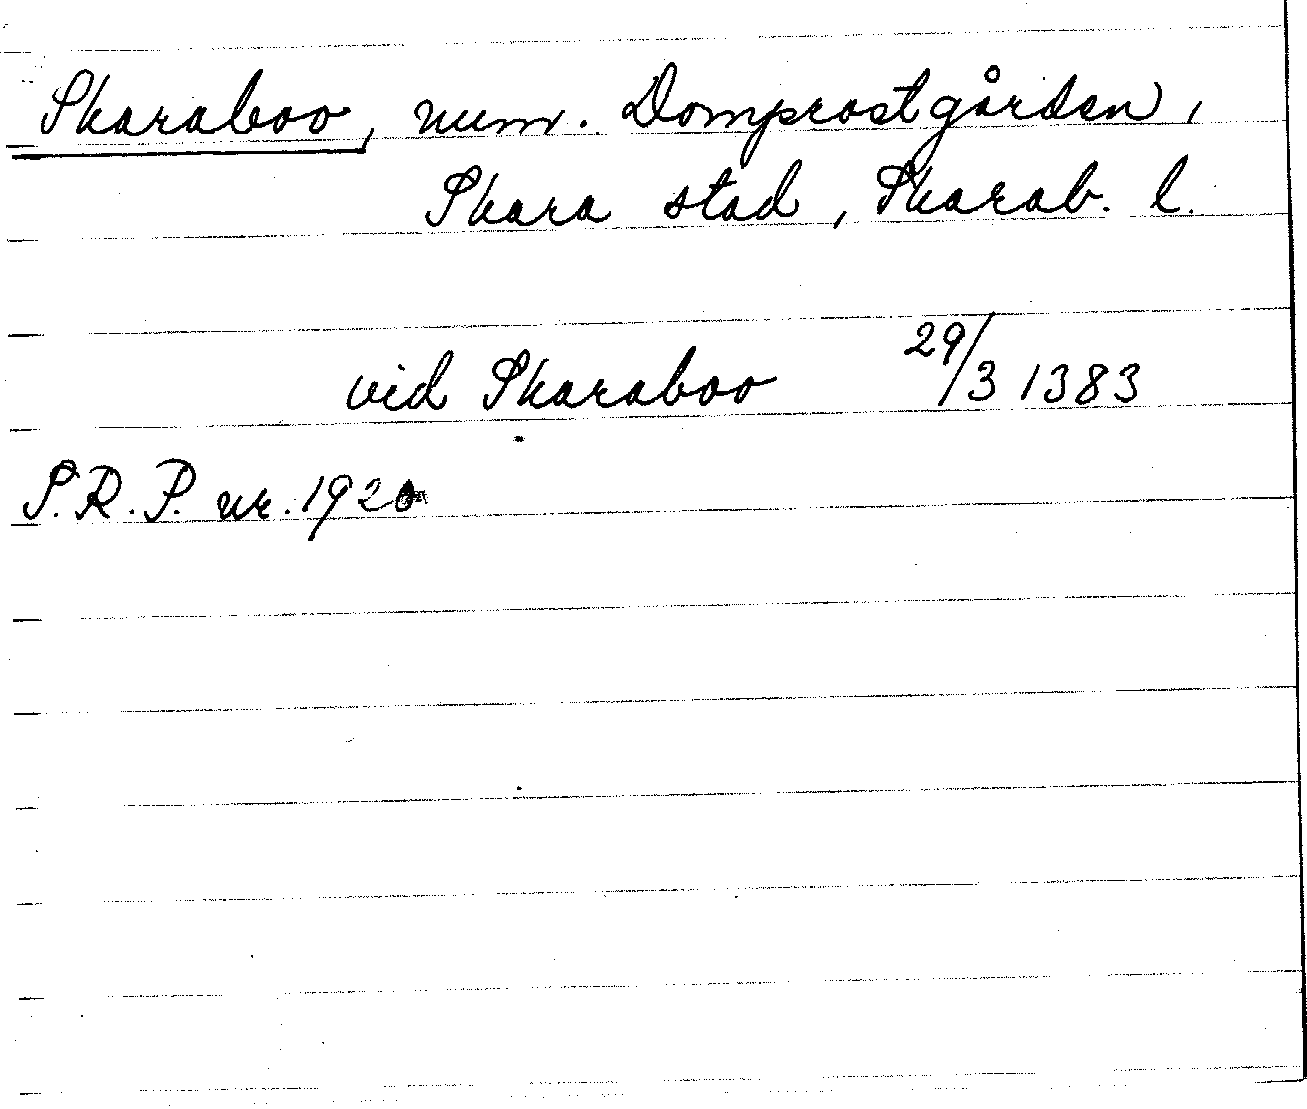 Skaraboo, num. Domprostgården,
Skara stad, Skarab. l.
vid Skaraboo 29/3 1383
S.R.P. nr. 1920